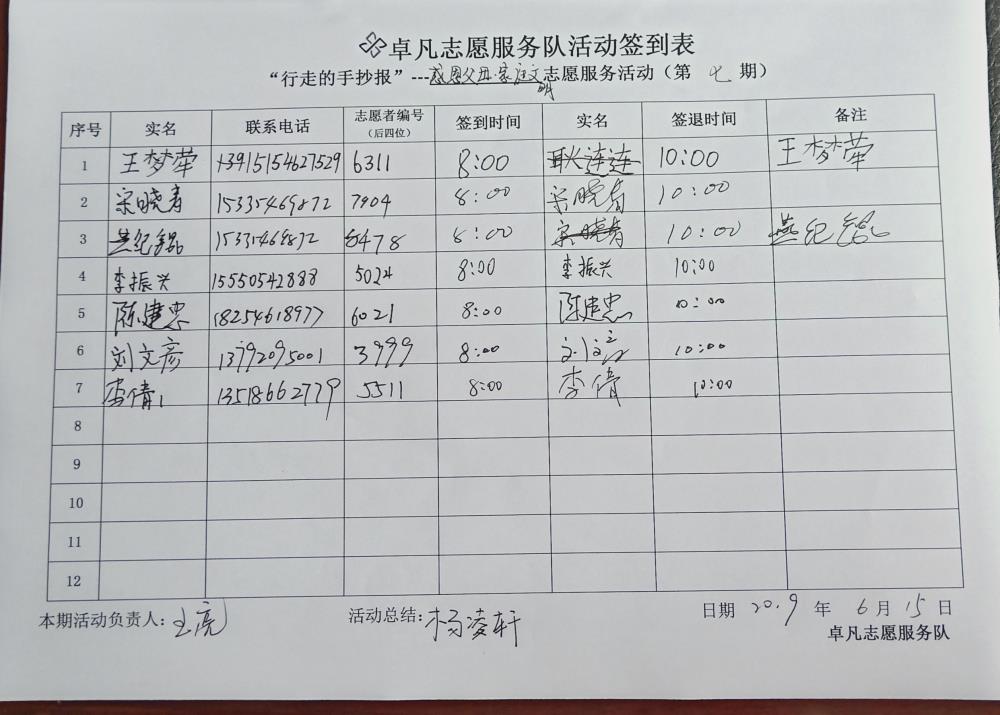 卓凡志愿服务队活动签到表
“行走的手抄报”---感恩父母·家庭文明志愿服务活动（第 七 期）
序号 实名 联系电话 志愿者编号（后四位） 签到时间 实名 签退时间 备注
1 王梦荦 6311 8:00 耿连连 10:00 王梦荦
2 宋晓青 15335469872 7904 8:00 宋晓青 10:00
3 燕纪铭 478 8:00 宋晓青 10:00 燕纪铭
4 李振兴 15550542888 5024 8:00 李振兴 10:00
5 陈建忠 18254618977 6021 8:00 陈建忠 10:00
6 刘文彦 13792095001 3999 8:00 刘文彦 10:00
7 李倩 13518662779 5511 8:00 李倩 10:00
8
9
10
11
12
本期活动负责人：王亮 活动总结：杨凌轩 日期 20.9 年 6 月 15 日
卓凡志愿服务队